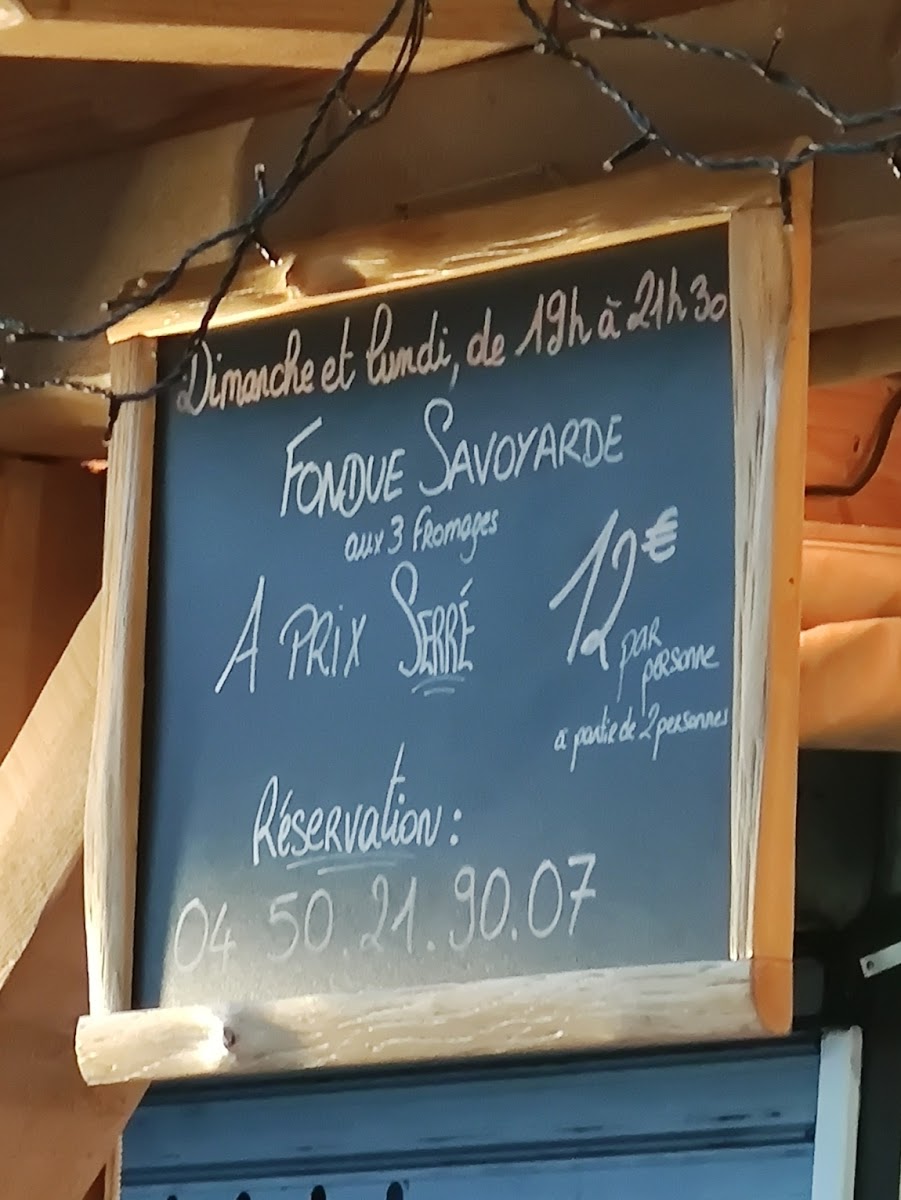 Dimanche et lundi, de 19h à 21h30
FONDUE SAVOYARDE
aux 3 fromages
A PRIX SERRÉ
12€
par
personne
a partie de 2 personnes
Réservation :
04 50.21.90.07